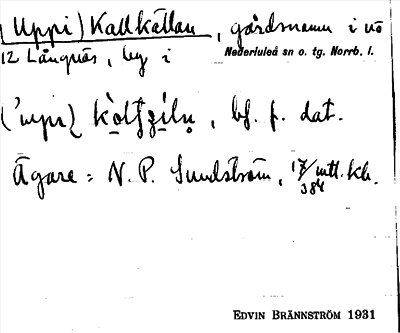 (Uppi) Kallkällan, gårdsnamn i nö
12 Långnäs, by i Nederluleå sn o. tg. Norrb. l.
Ägare: N. P. Sundström, 17/384 mtl. kh.
EDVIN BRÄNNSTRÖM 1931